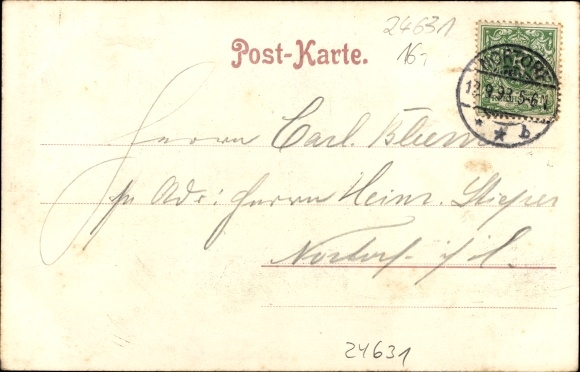 24631
16,-
Post-Karte.
NORTORF
12.9.98.5-6N
* * b
Herrn Carl Blum
pr Adr: Herrn Heinr. Stieper
Nortorf i/H.
24631